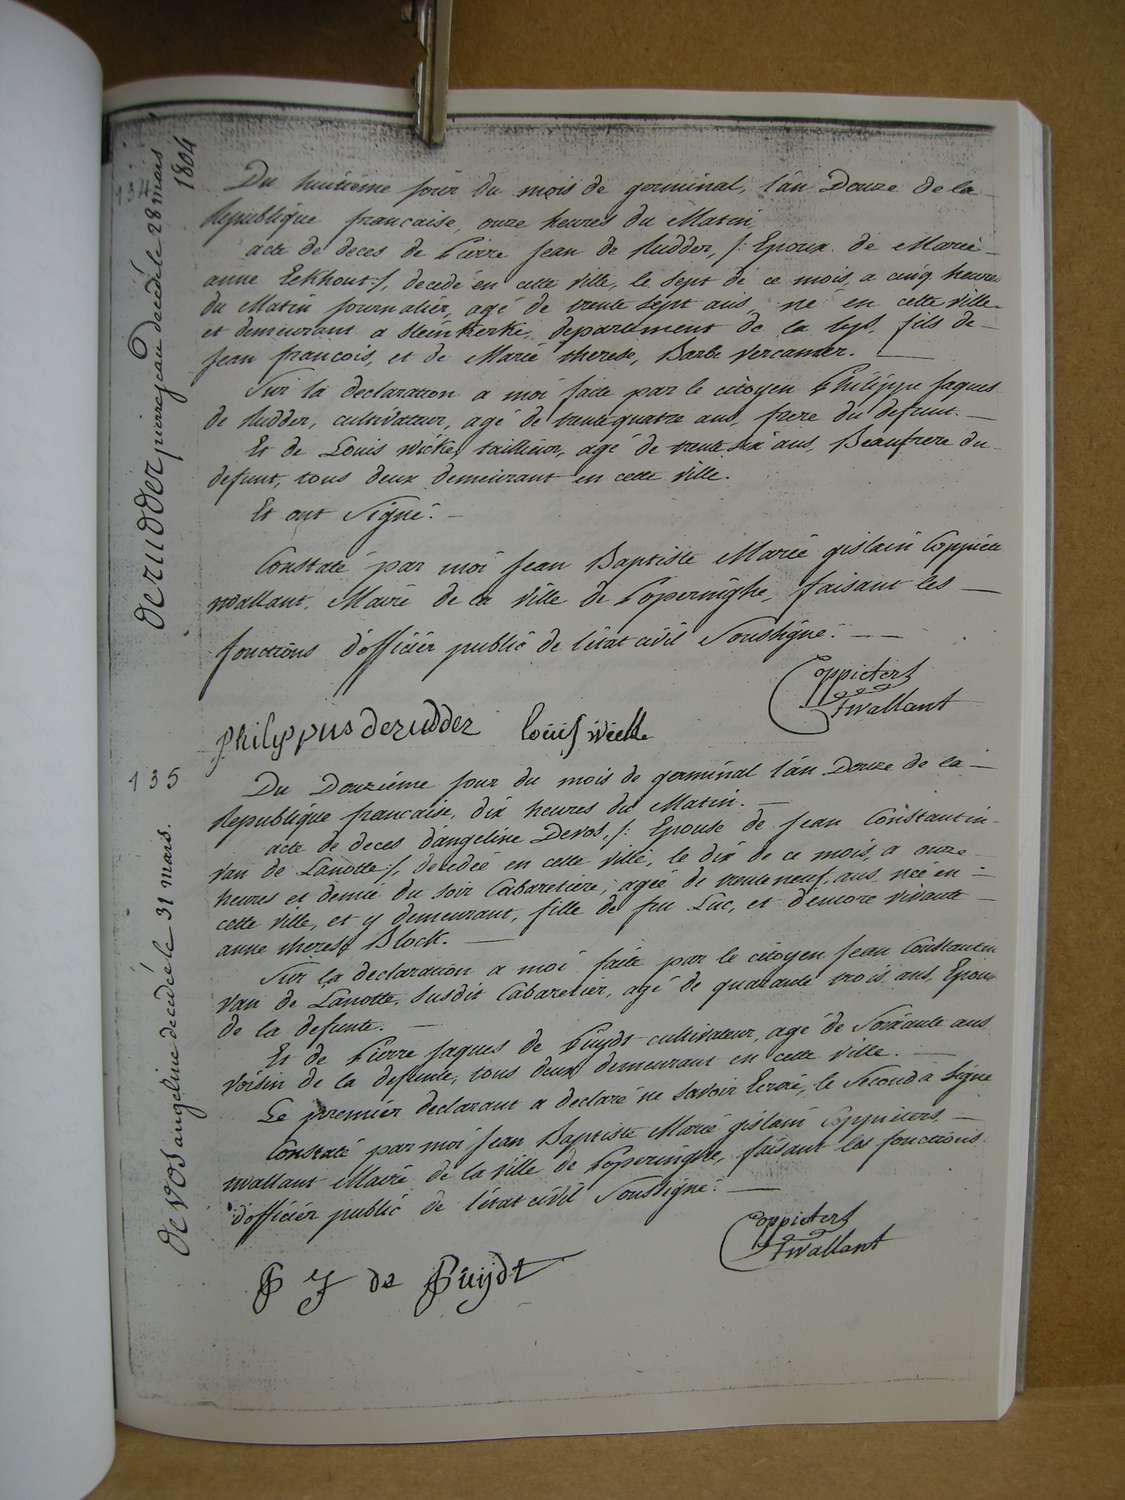 134
derudder pierre jean decedé le 28 mars
1804
Du huitième jour du mois de germinal, l'an Douze de la
Republique française, onze heures du Matin,
acte de deces de Pierre Jean de Rudder, /: Epoux de Marie
anne Eekhout :/, decedé en cette ville, le sept de ce mois, a cinq heures
du Matin journalier, agé de trente sept ans, né en cette ville
et demeurant a Steinkerke, departement de la Lys, fils de
Jean francois, et de Marie therese, Barbe Vercamer.
Sur la declaration a moi faite par le citoyen Philippe Jaques
de Rudder, cultivateur, agé de trente quatre ans, frere du defunt.
Et de Louis Wicke, tailleur, agé de trente six ans, Beaufrere du
defunt, tous deux demeurant en cette ville.
Et ont Signé.
Constaté par moi Jean Baptiste Marie gislain Coppieters
wallant, Maire de la ville de Poperinghe, faisant les
fonctions d'officier public de l'état civil Soussigné.
Coppieters
twallant
Philyppus derudder Louis Wicke
135
de vos angeline decedée le 31 mars.
Du Douzième jour du mois de germinal l'an Douze de la
Republique francaise, dix heures du Matin.
acte de deces d'angeline Devos, /: Epouse de Jean Constantin
van de Lanotte :/, decedée en cette ville, le dix de ce mois, a onze
heures et demie du soir Cabaretiere, agée de trente neuf ans, née en
cette ville, et y demeurant, fille de feu Luc, et d'encore vivante
anne therese Block.
Sur la declaration a moi faite par le citoyen Jean Constantin
van de Lanotte, susdit Cabaretier, agé de quarante trois ans, Epoux
de la defunte.
Et de Pierre Jaques de Puydt cultivateur, agé de Soixante ans
voisin de la defunte, tous deux demeurant en cette ville.
Le premier declarant a declaré ne savoir Ecrire, le Second a Signé
Constaté par moi Jean Baptiste Marie gislain Coppieters
wallant Maire de la ville de Poperinghe, faisant les fonctions
d'officier public de l'état civil Soussigné.
Coppieters
twallant
P J de Puijdt